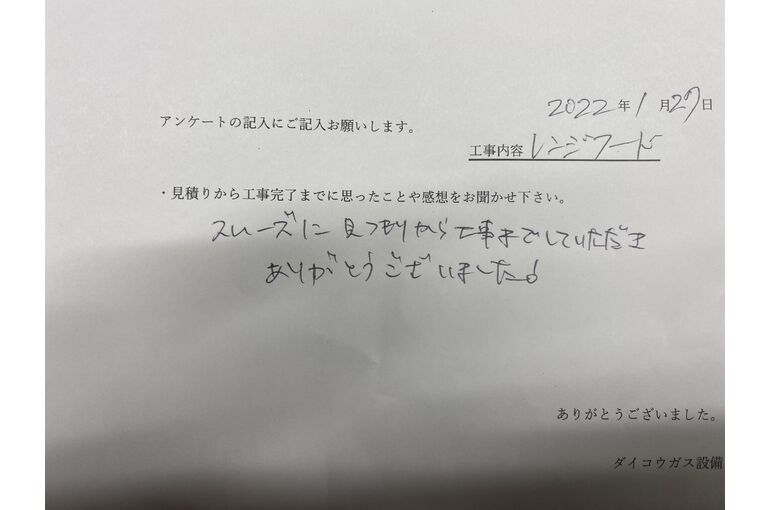 2022年1月27日
アンケートの記入にご記入お願いします。
工事内容 レンジフード
・見積りから工事完了までに思ったことや感想をお聞かせ下さい。
スムーズに見つもりから工事までしていただき
ありがとうございました!
ありがとうございました。
ダイコウガス設備